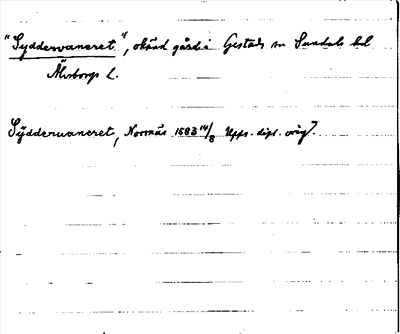 "Syddervaneret", okänd gård i Gestads sn Sundals hd
Älvsborgs L.
Sÿdderuaneret, Normäs 1583 14/8 Upps. dipl. orig.